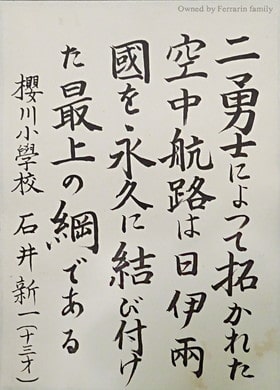 Owned by Ferrarin family
二勇士によつて拓かれた
空中航路は日伊兩
國を永久に結び付け
た最上の綱である
櫻川小學校 石井新一(十三才)